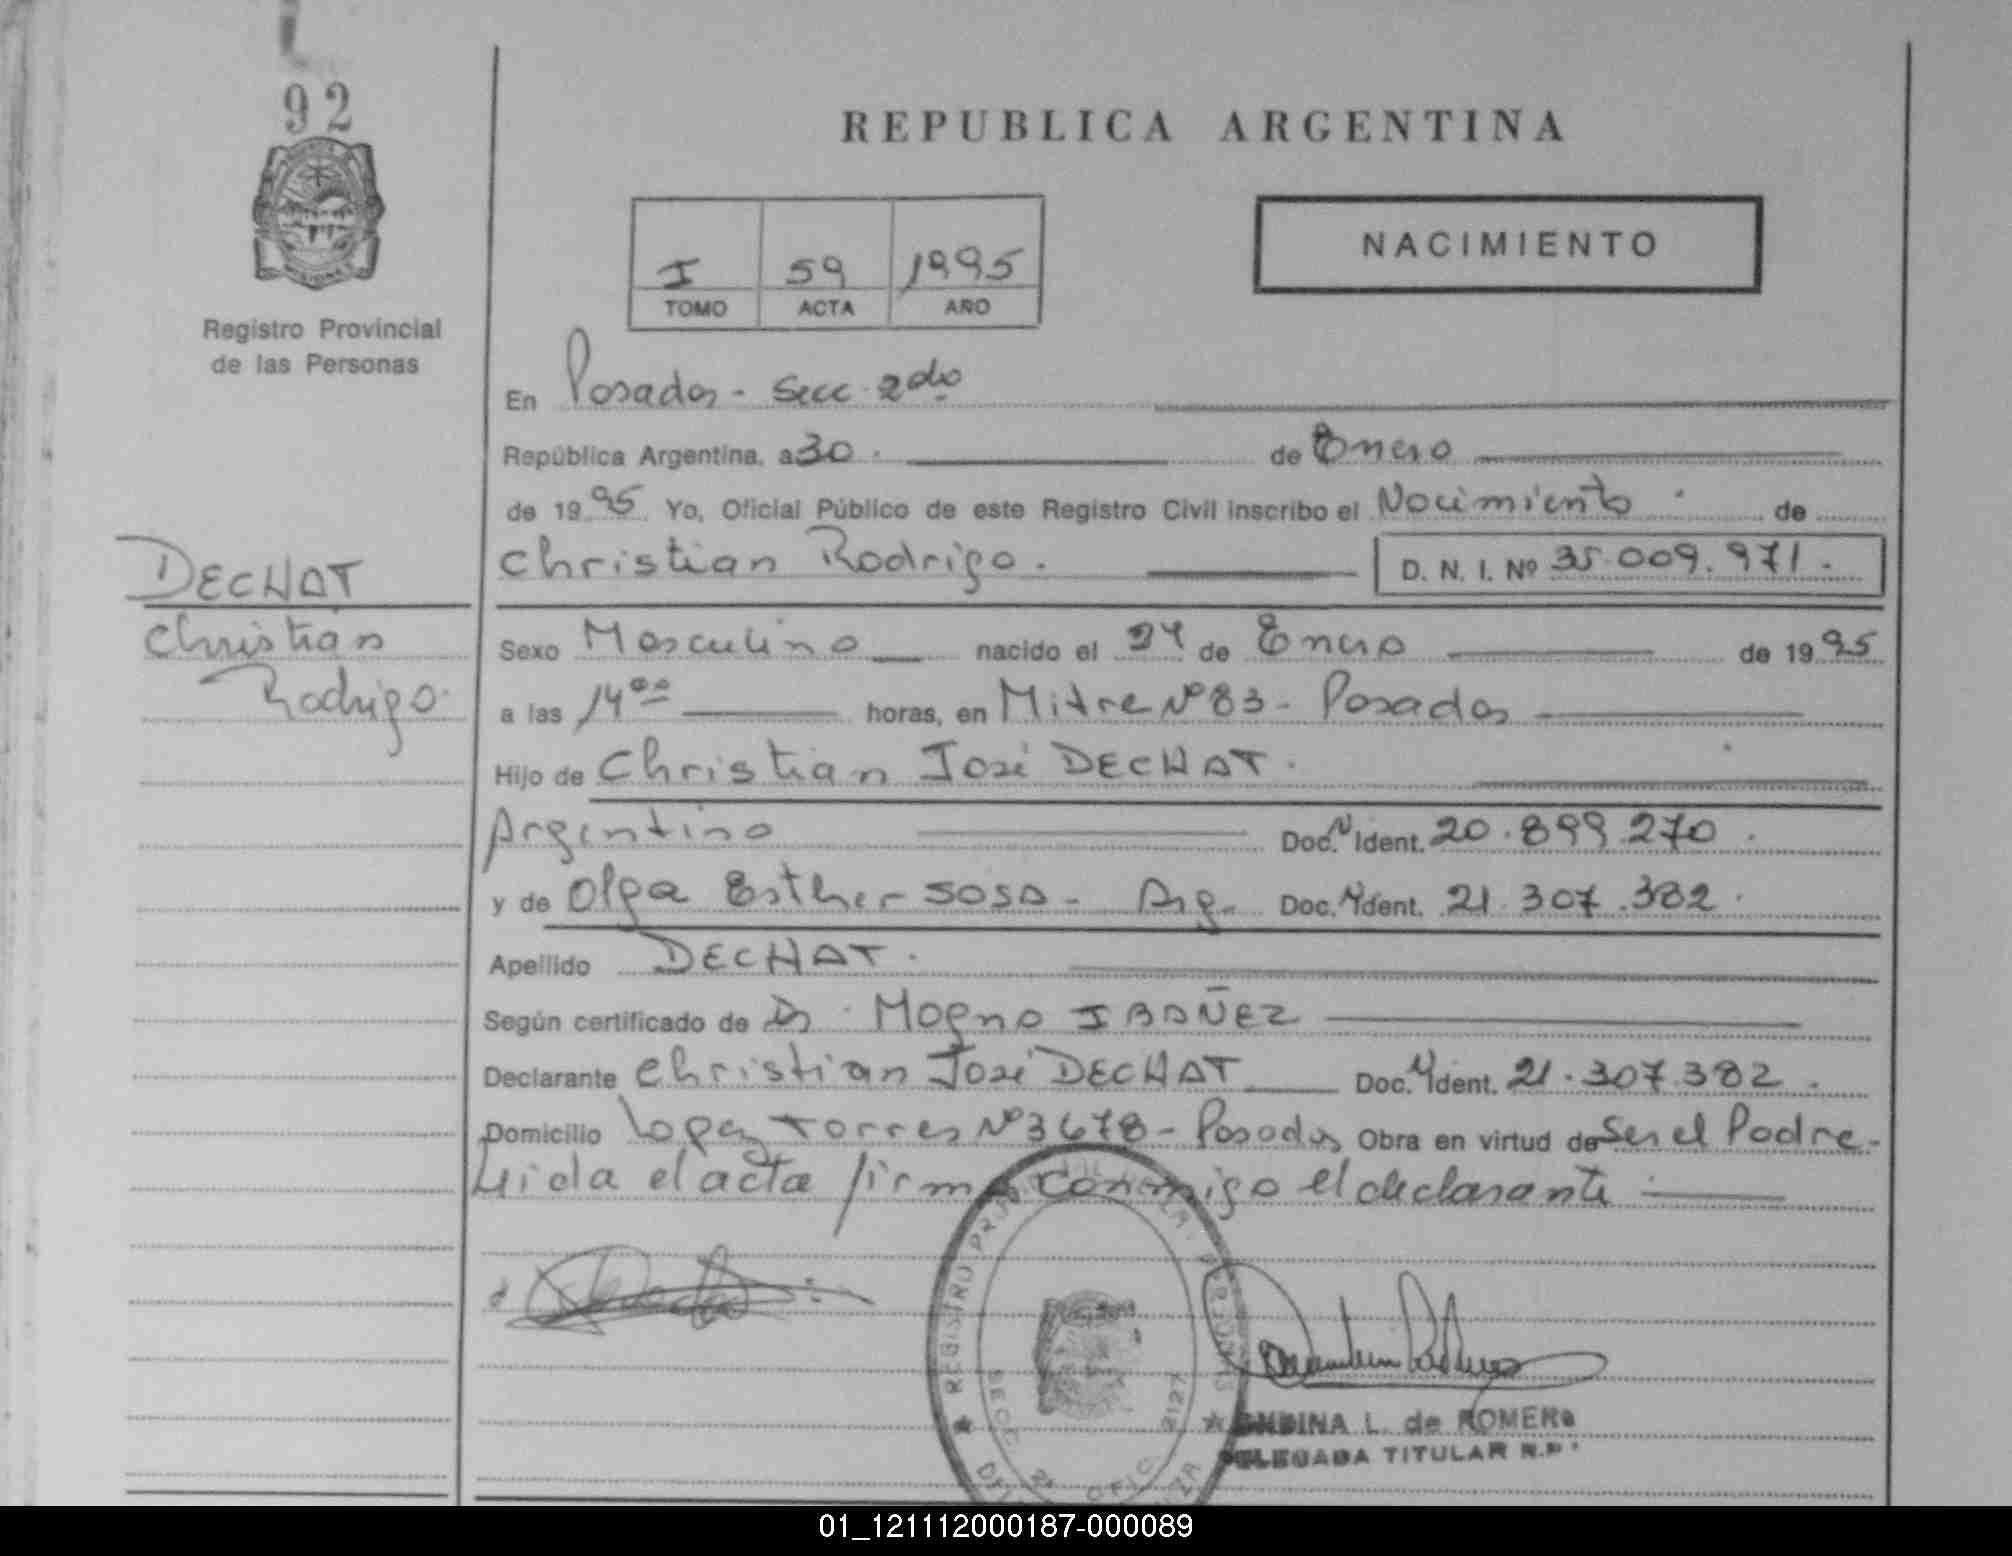 92
REPUBLICA ARGENTINA
I 59 1995
TOMO ACTA AÑO
NACIMIENTO
Registro Provincial
de las Personas
En Posadas - Secc. 2da
República Argentina, a 30. de Enero
de 1995 Yo, Oficial Público de este Registro Civil inscribo el Nacimiento de
Christian Rodrigo. D. N. I. Nº 35.009.971.
DECHAT
Christian
Rodrigo.
Sexo Masculino nacido el 24 de Enero de 1995
a las 14 00 horas, en Mitre Nº 83 - Posadas
Hijo de Christian José DECHAT.
Argentino Doc. N Ident. 20.899.270.
y de Olga Esther SOSA - Arg. Doc. N Ident. 21.307.382.
Apellido DECHAT.
Según certificado de Dr. Magno IBAÑEZ
Declarante Christian José DECHAT Doc. N Ident. 21.307.382.
Domicilio Lopez Torres Nº 3678 - Posadas Obra en virtud de Ser el Padre.-
Leida el acta firma conmigo el declarante
REGISTRO
SECC. 2ª OFIC. 2127
L. de ROMERO
DELEGADA TITULAR R.P.
01_121112000187-000089